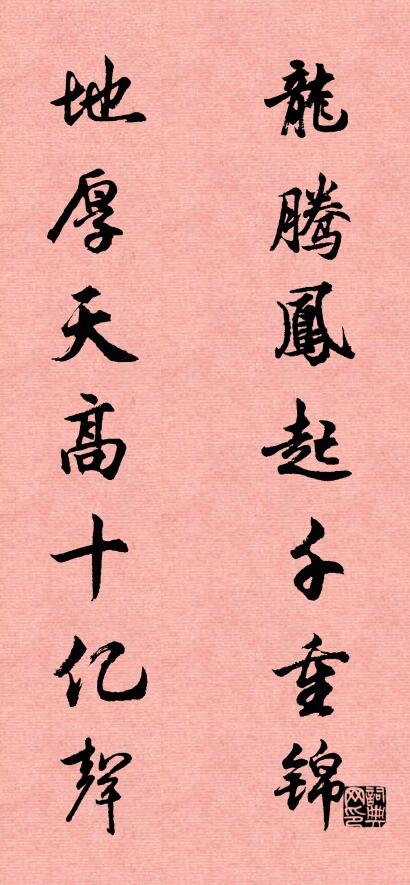 龍騰鳳起千重錦
地厚天高十亿聲
詞典网印